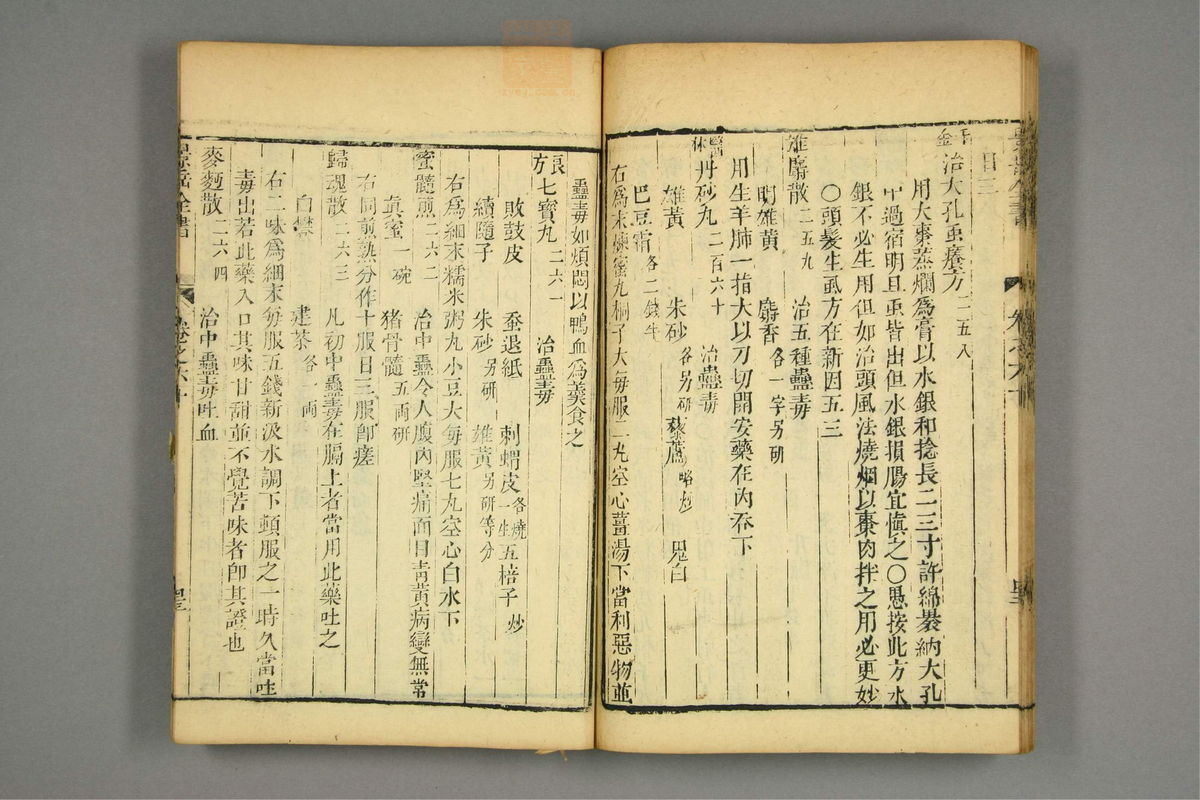 日三
治大孔虫癢方二五八
用大棗蒸爛爲膏以水銀和捻長二三寸許綿裹納大孔
中過宿明旦虫皆出但水銀損腸宜慎之○愚按此方水
銀不必生用但如治頭風法燒烟以棗肉拌之用必更妙
○頭髮生虱方在新因五三
雄麝散二五九 治五種蠱毒
明雄黄 麝香各一字另研
用生羊肺一指大以刀切開安藥在內吞下
醫林 丹砂丸二百六十 治蠱毒
雄黄 朱砂各另研 藜蘆略炒 鬼臼
巴豆霜各二錢半
右爲末煉蜜丸桐子大每服二丸空心薑湯下當利惡物並
蠱毒如煩悶以鴨血爲羹食之
良方 七寶丸二六一 治蠱毒
敗鼓皮 蚕退紙 刺蝟皮各燒一生 五棓子炒
續隨子 朱砂另研 雄黄另研等分
右爲細末糯米粥丸小豆大每服七丸空心白水下
蜜髓煎二六二 治中蠱令人腹內堅痛面目青黄病變無常
真蜜一碗 猪骨髓五両研
右同煎熟分作十服日三服卽瘥
歸魂散二六三 凡初中蠱毒在膈上者當用此藥吐之
白礬 建茶各一両
右二味爲細末每服五錢新汲水調下頓服之一時久當吐
毒出若此藥入口其味甘甜並不覺苦味者卽其證也
麥麵散二六四 治中蠱毒吐血
景岳全書 卷之六十